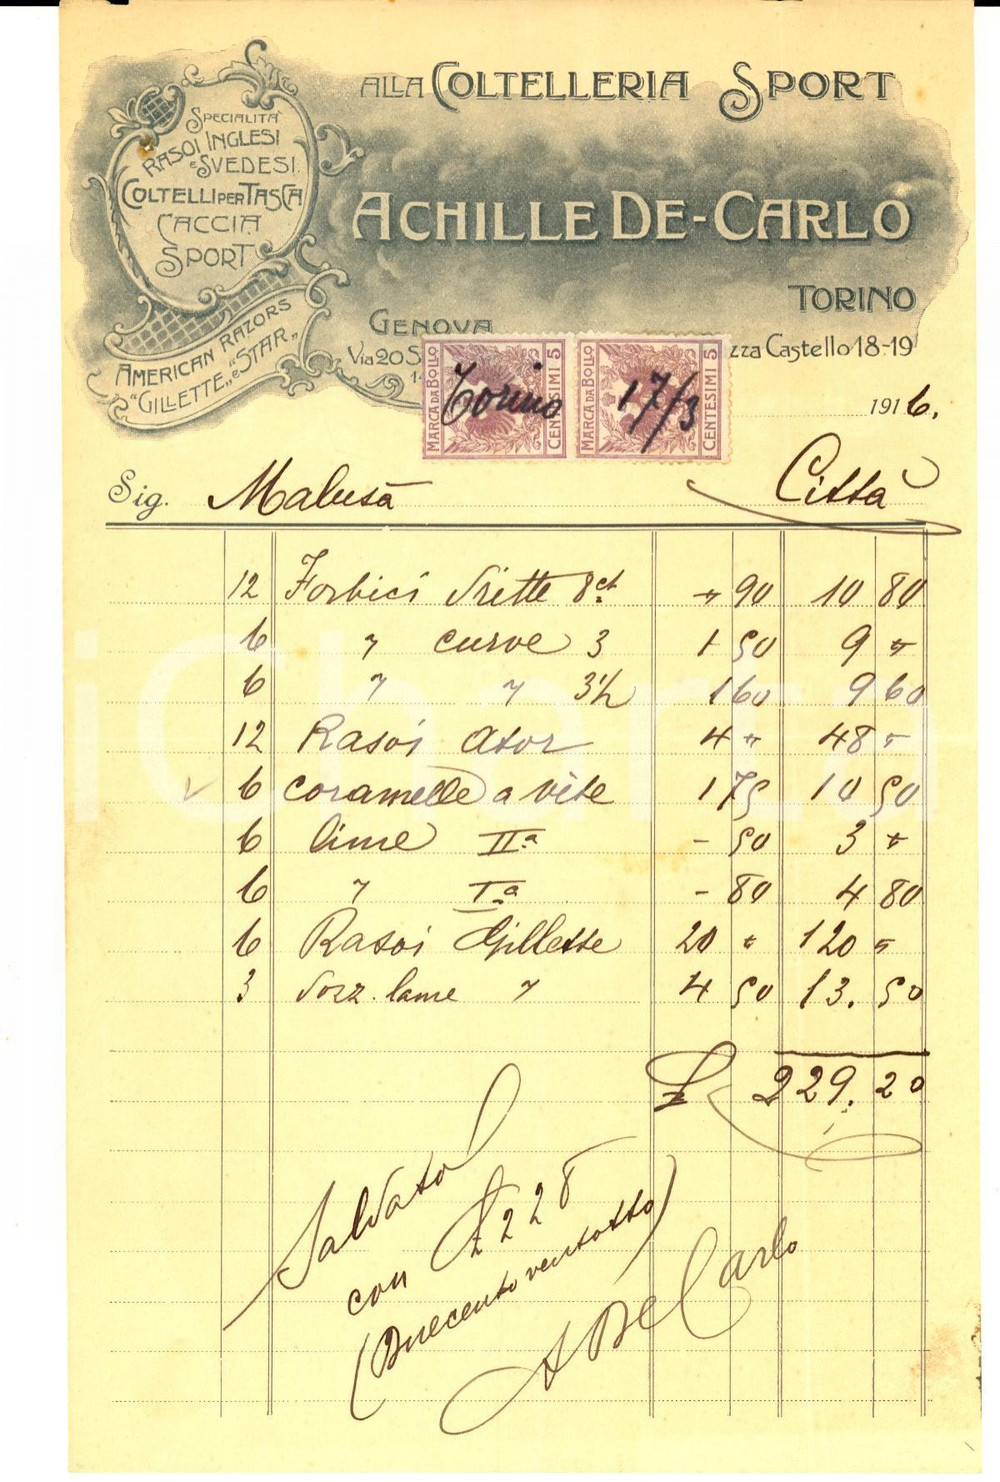 ALLA COLTELLERIA SPORT
SPECIALITÀ
RASOI INGLESI
E SVEDESI.
COLTELLI PER TASCA
CACCIA
SPORT
AMERICAN RAZORS
"GILLETTE" E "STAR"
ACHILLE DE-CARLO
TORINO
GENOVA
Via 20 S
zza Castello 18-19
MARCA DA BOLLO CENTESIMI 5
MARCA DA BOLLO CENTESIMI 5
Torino 17/3 1916.
Sig. Malusà Città
12 Forbici dritte 8ct " 90 10 80
6 " curve 3 1 50 9 "
6 " " 3 1/2 1 60 9 60
12 Rasoi Ator 4 " 48 "
6 coramelle a vite 1 75 10 50
6 lime IIa - 50 3 "
6 " Ia - 80 4 80
6 Rasoi Gillette 20 " 120 "
3 dozz. lame " 4 50 13. 50
£ 229.20
Saldato
con £ 228
(Duecentoventotto)
A De Carlo
iCharta